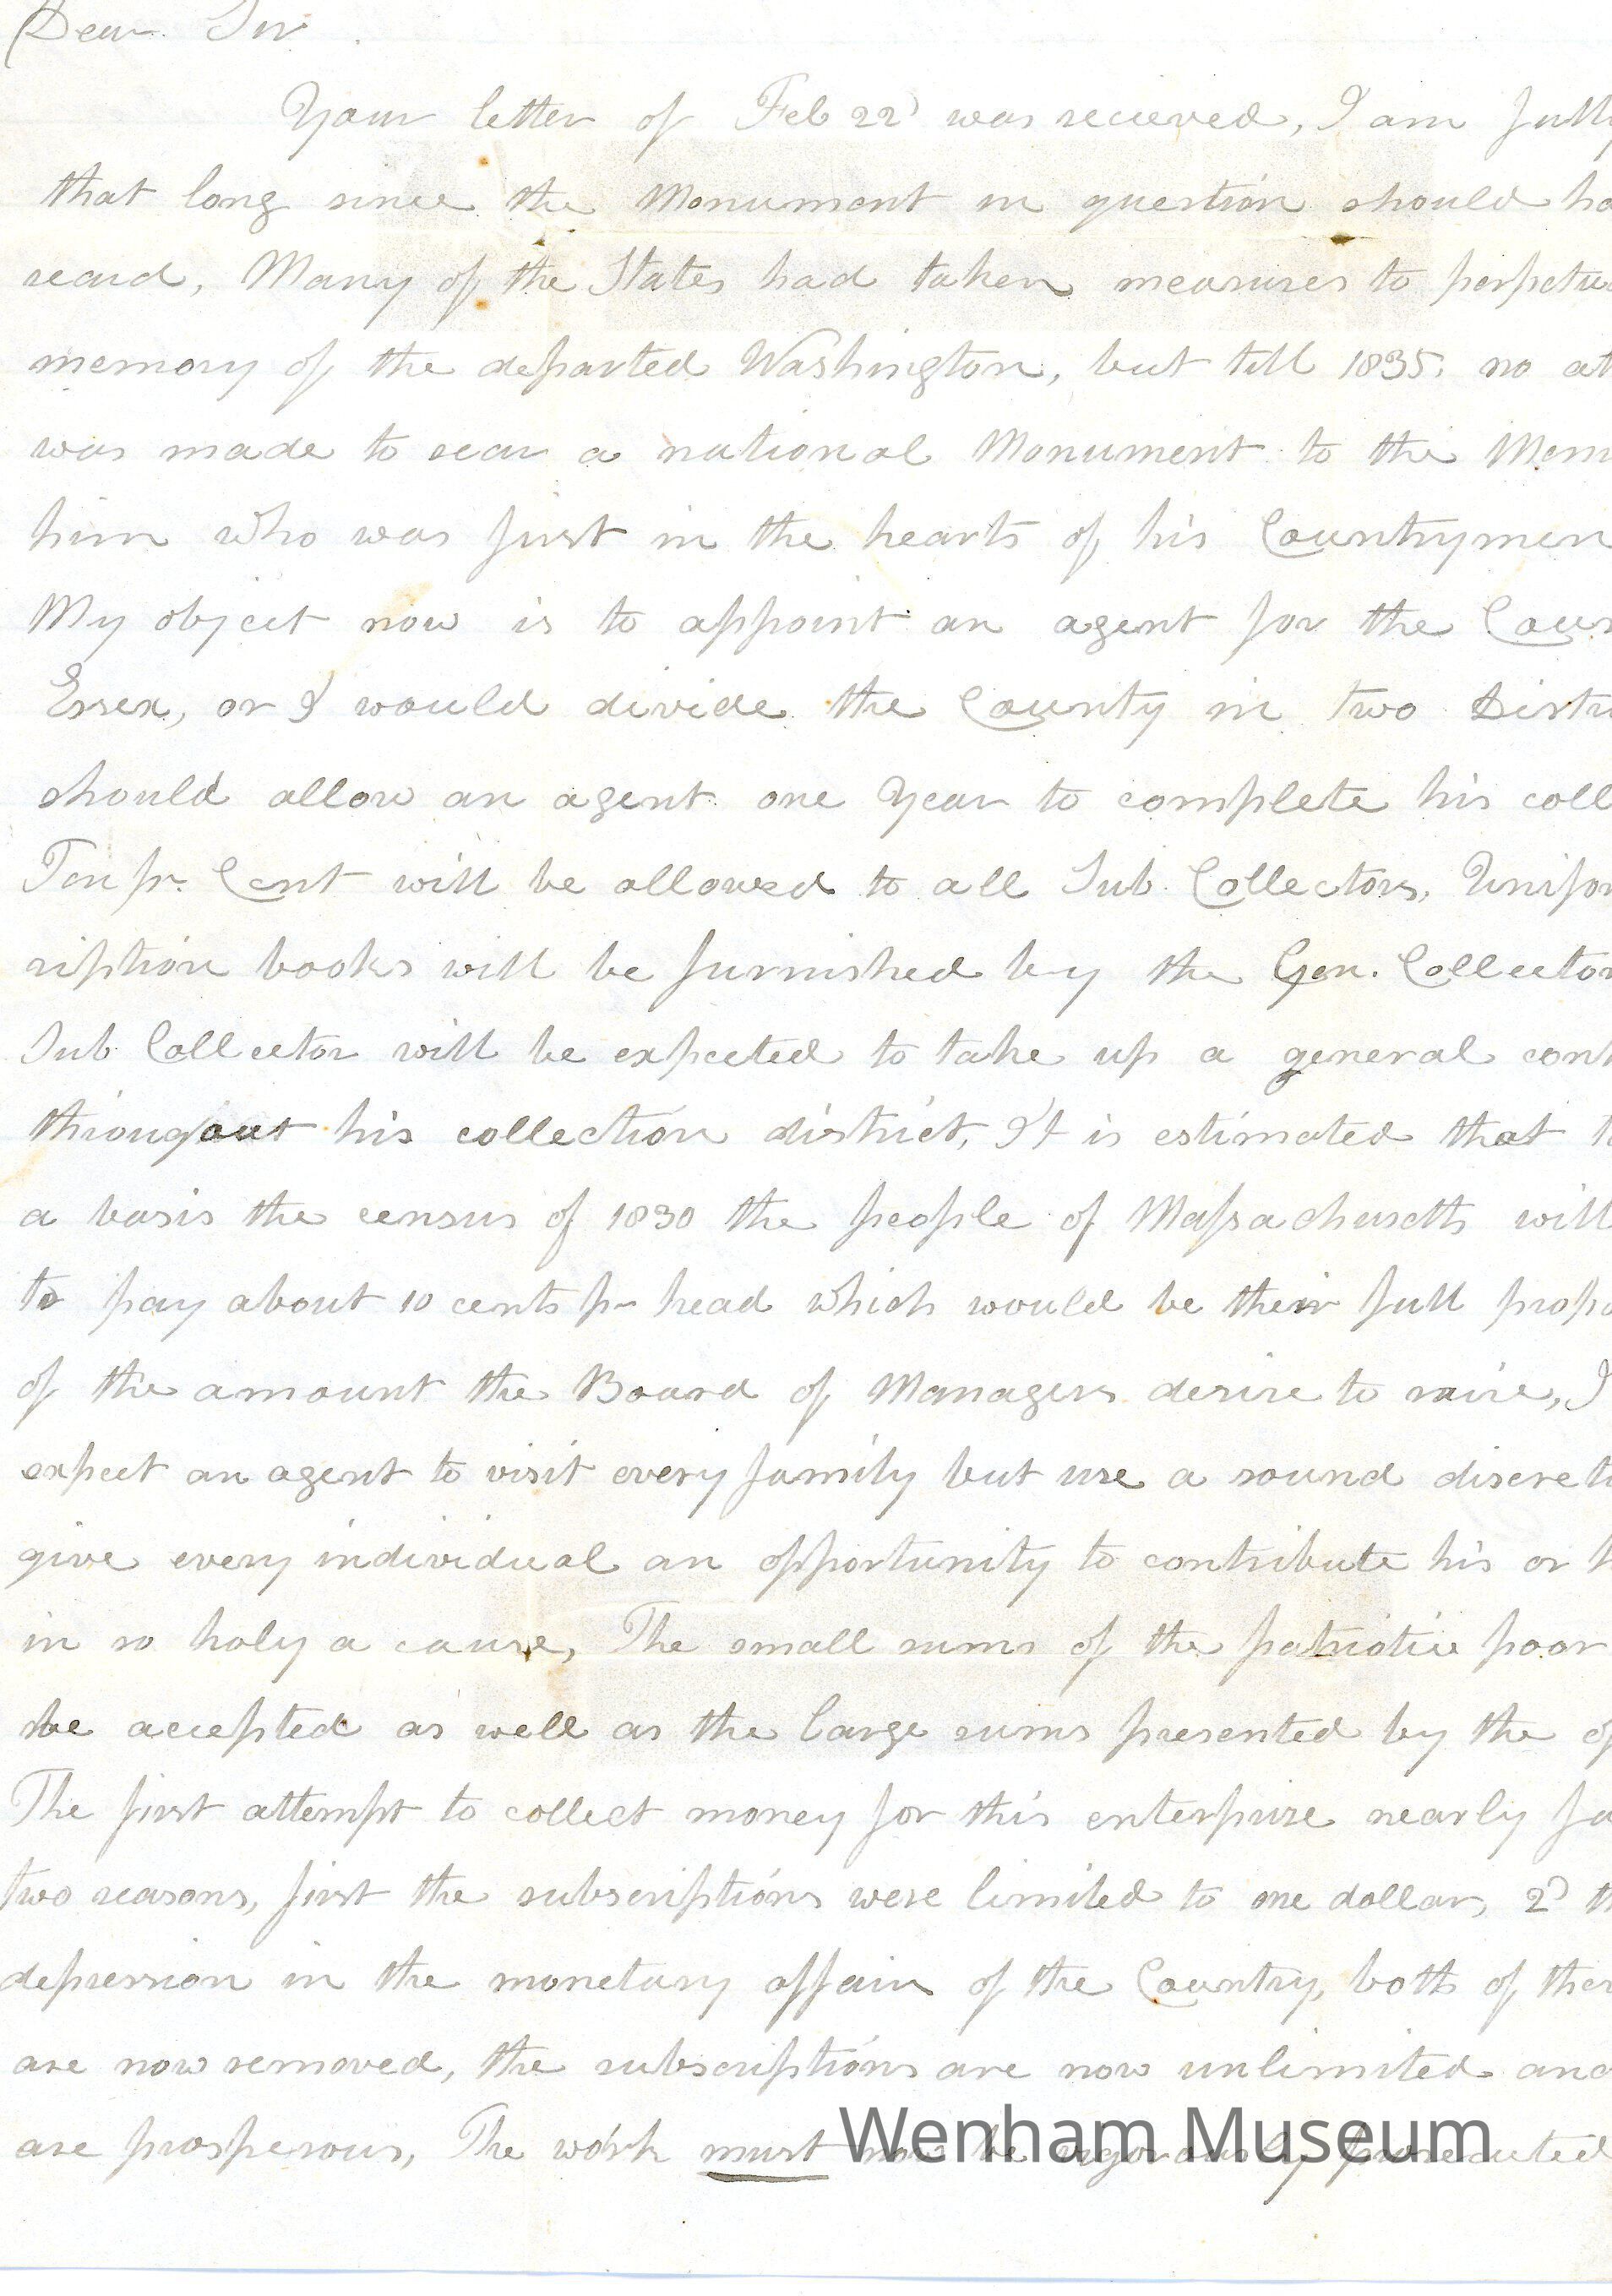 Dear Sir.
Your letter of Feb 22d was recieved, I am fully
that long since the Monument in question should ha
reard, Many of the States had taken measures to perpetu
memory of the departed Washington, but till 1835, no at
was made to rear a national Monument to the Mem
him who was first in the hearts of his Countrymen
My object now is to appoint an agent for the Coun
Essex, or I would divide the County in two Distri
should allow an agent one Year to complete his coll
Ten pr. Cent will be allowed to all Sub. Collectors, Unifor
ription books will be furnished by the Gen. Collector
Sub Collector will be expected to take up a general cont
througout his collection district, It is estimated that t
a basis the census of 1830 the people of Massachusetts will
to pay about 10 cents pr head which would be their full propo
of the amount the Board of Managers desire to raise, I
expect an agent to visit every family but use a sound discreti
give every individual an opportunity to contribute his or h
in so holy a cause, The small sums of the patriotic poor
be accepted as well as the large sums presented by the op
The first attempt to collect money for this enterprize nearly fa
two reasons, first the subscriptions were limited to one dollar, 2d th
depression in the monetary affairs of the Country, both of thes
are now removed, the subscriptions are now unlimited and
are prosperous, The work must now be vigorously prosecuted
Wenham Museum